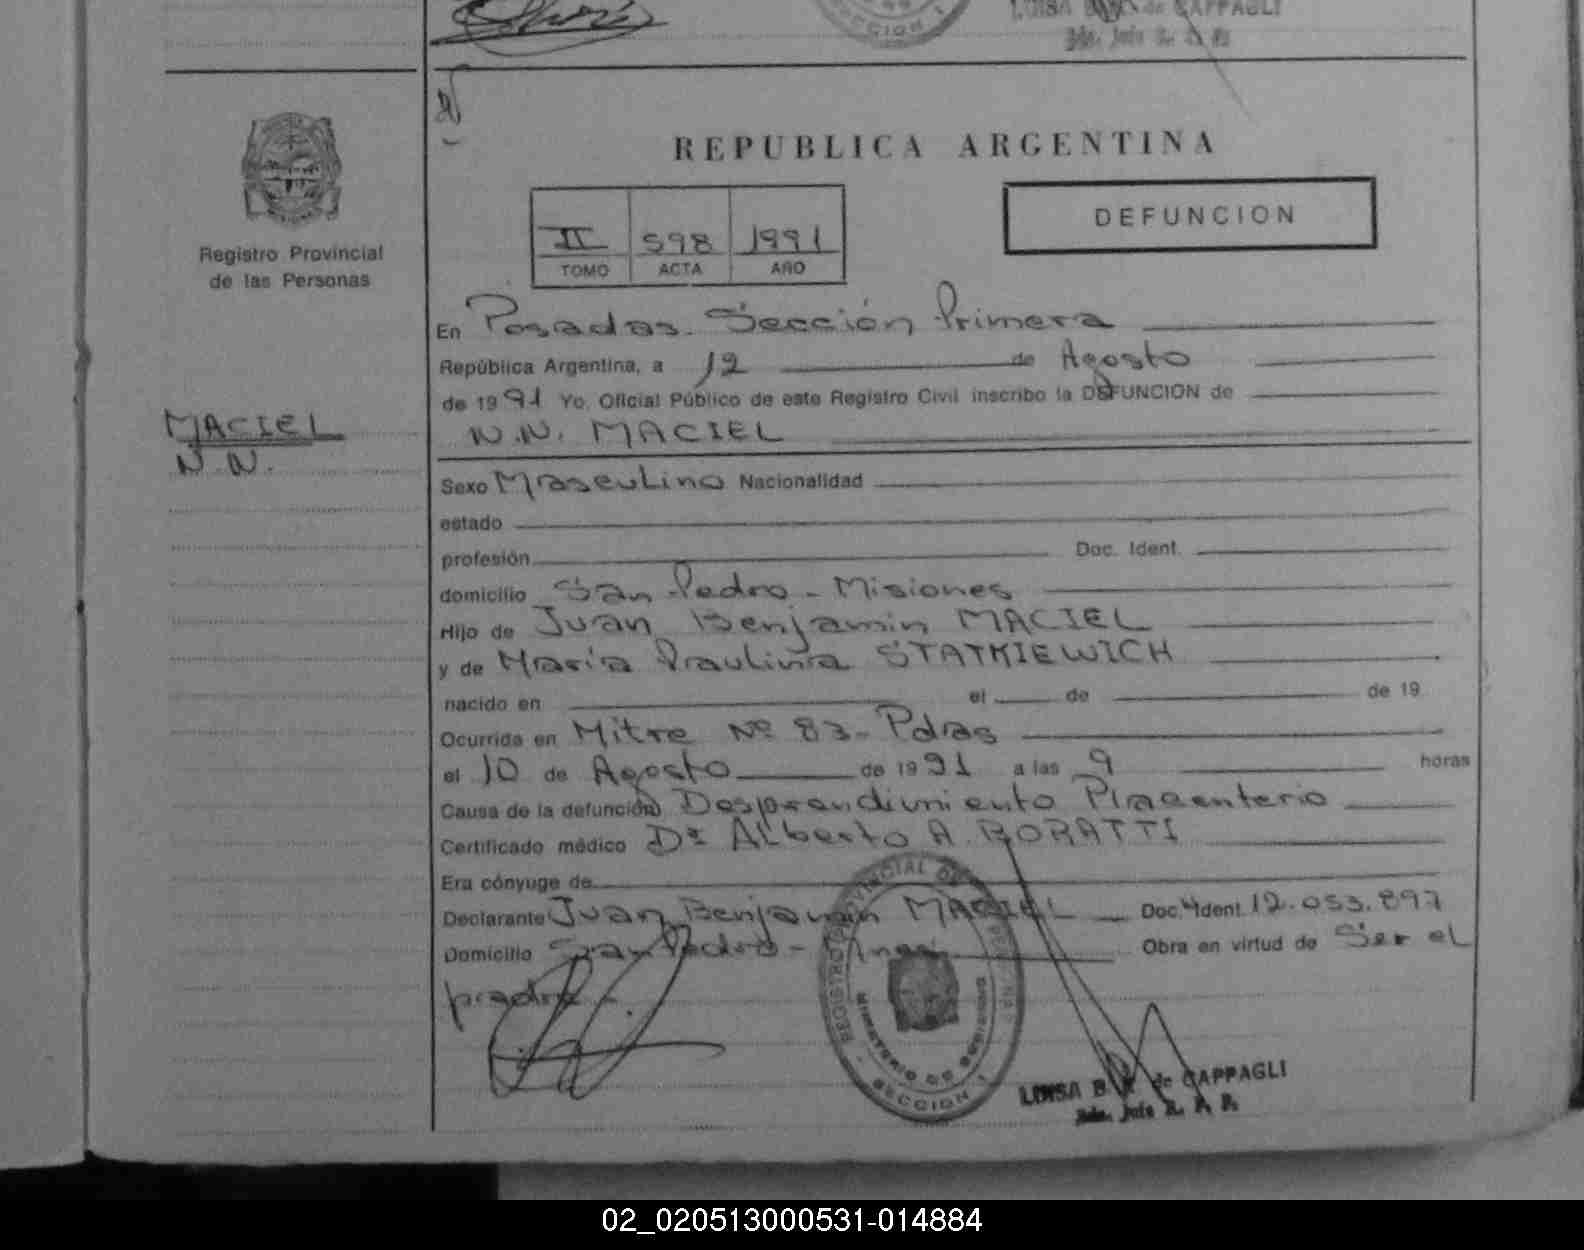 SECCION 1
LUISA B. de CAPPAGLI
Sda. Jefe R. P. P.
REPUBLICA ARGENTINA
DEFUNCION
II 598 1991
TOMO ACTA AÑO
Registro Provincial
de las Personas
En Posadas. Sección Primera
República Argentina, a 12 de Agosto
de 1991 Yo, Oficial Público de este Registro Civil inscribo la DEFUNCION de
MACIEL
N.N.
N.N. MACIEL
Sexo Masculino Nacionalidad
estado
profesión Doc. Ident.
domicilio San Pedro - Misiones
Hijo de Juan Benjamin MACIEL
y de María Paulina STATKIEWICH
nacido en el de de 19
Ocurrida en Mitre Nº 83 - Pdas
el 10 de Agosto de 1991 a las 9 horas
Causa de la defunción Desprendimiento Placenterio
Certificado médico Dr Alberto A. BORATTI
Era cónyuge de
Declarante Juan Benjamin MACIEL Doc. Ident. 12.053.897
Domicilio San Pedro - Obra en virtud de Ser el
padre -
REGISTRO PROVINCIAL DE LAS PERSONAS
MINISTERIO DE GOBIERNO
SECCION 1
LUISA B. de CAPPAGLI
Sda. Jefe R. P. P.
02_020513000531-014884